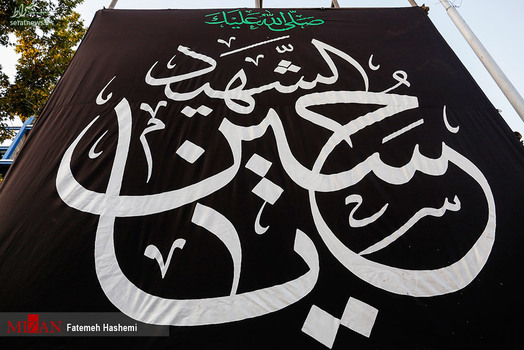 صلی الله علیک
یا حسین الشهید
seratnews
MIZAN Fatemeh Hashemi